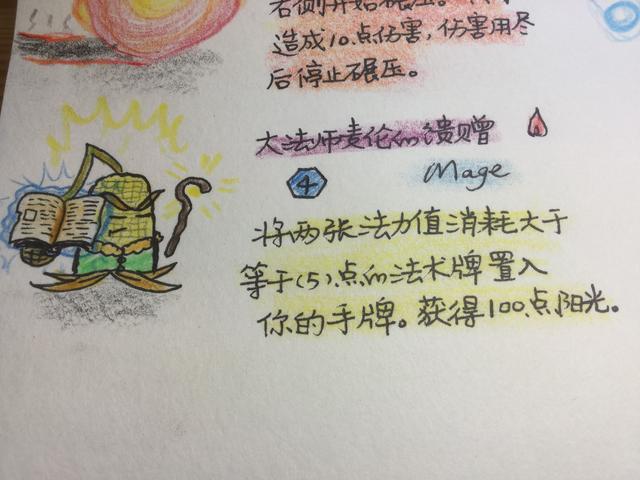 右侧开始碾压。
造成10点伤害,伤害用尽
后停止碾压。
大法师麦伦的溃赠
4
Mage
将两张法力值消耗大于
等于(5)点的法术牌置入
你的手牌。获得100点阳光。